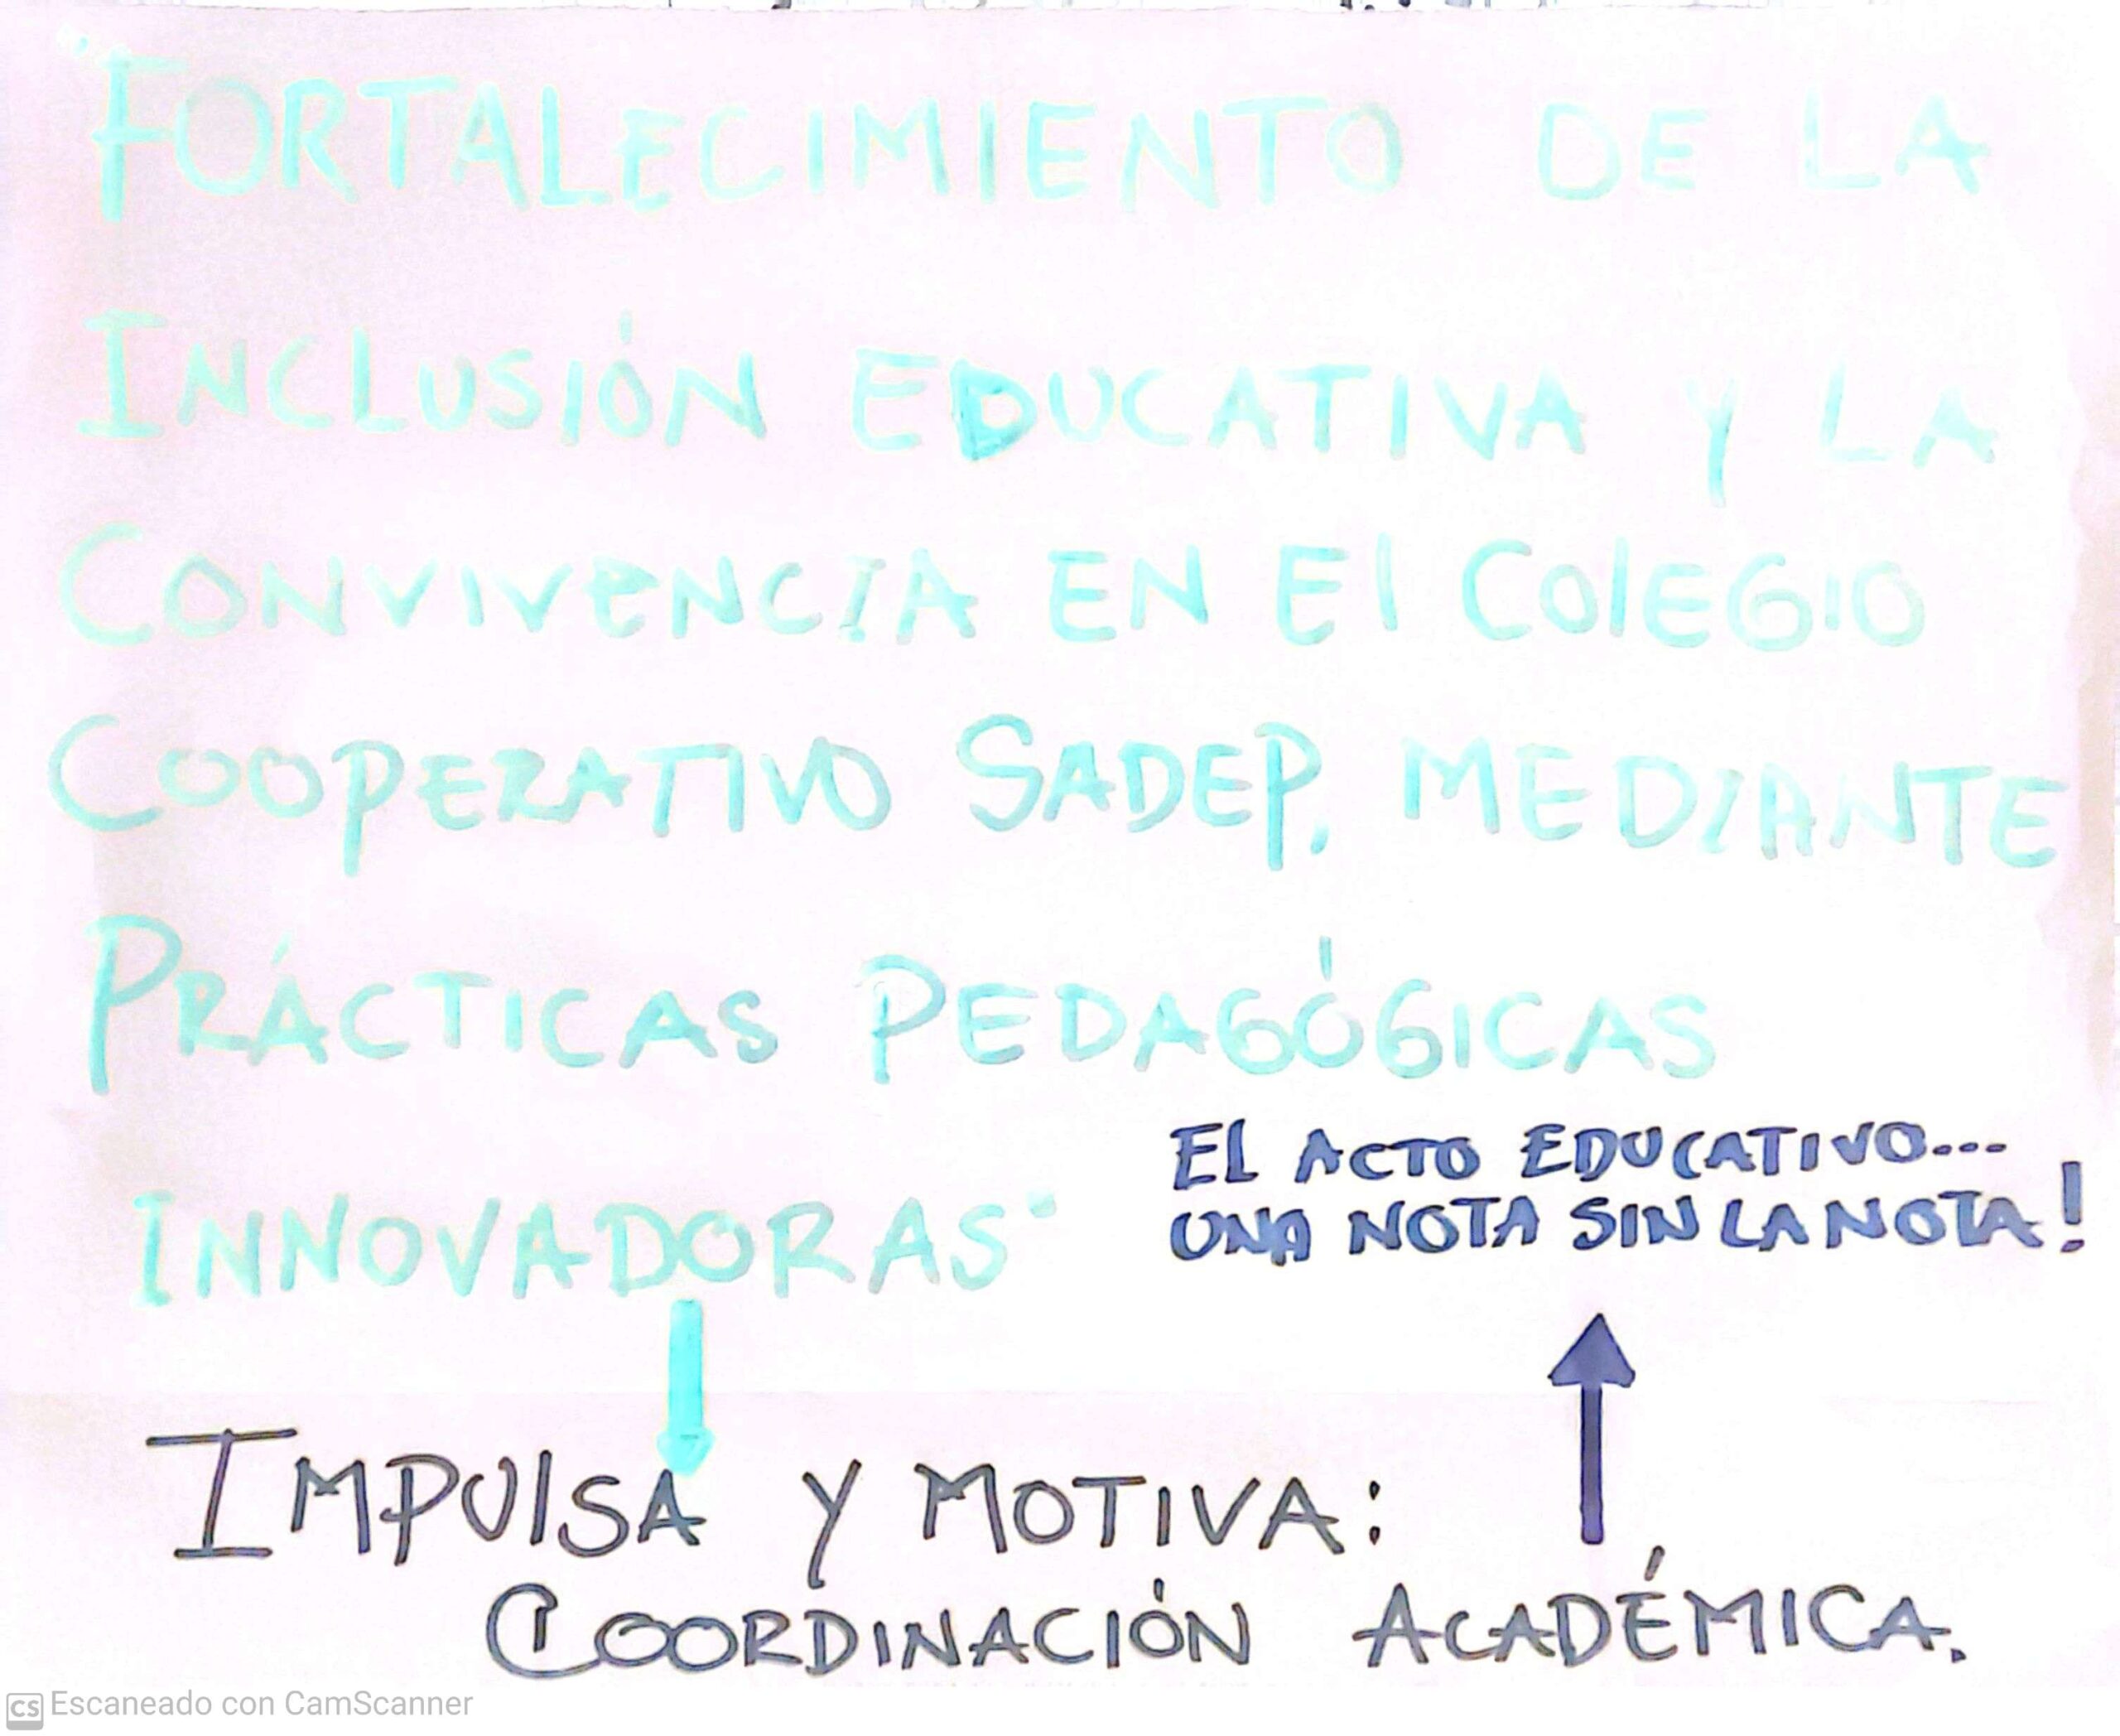 "FORTALECIMIENTO DE LA
INCLUSIÓN EDUCATIVA Y LA
CONVIVENCIA EN El COlEGIO
COOPERATIVO SADEP, MEDIANTE
PRÁCTICAS PEDAGÓGICAS
INNOVADORAS"
EL ACTO EDUCATIVO...
UNA NOTA SIN LA NOTA!
IMPUlSA Y MOTIVA:
COORDINACIÓN ACADÉMICA.
CS Escaneado con CamScanner